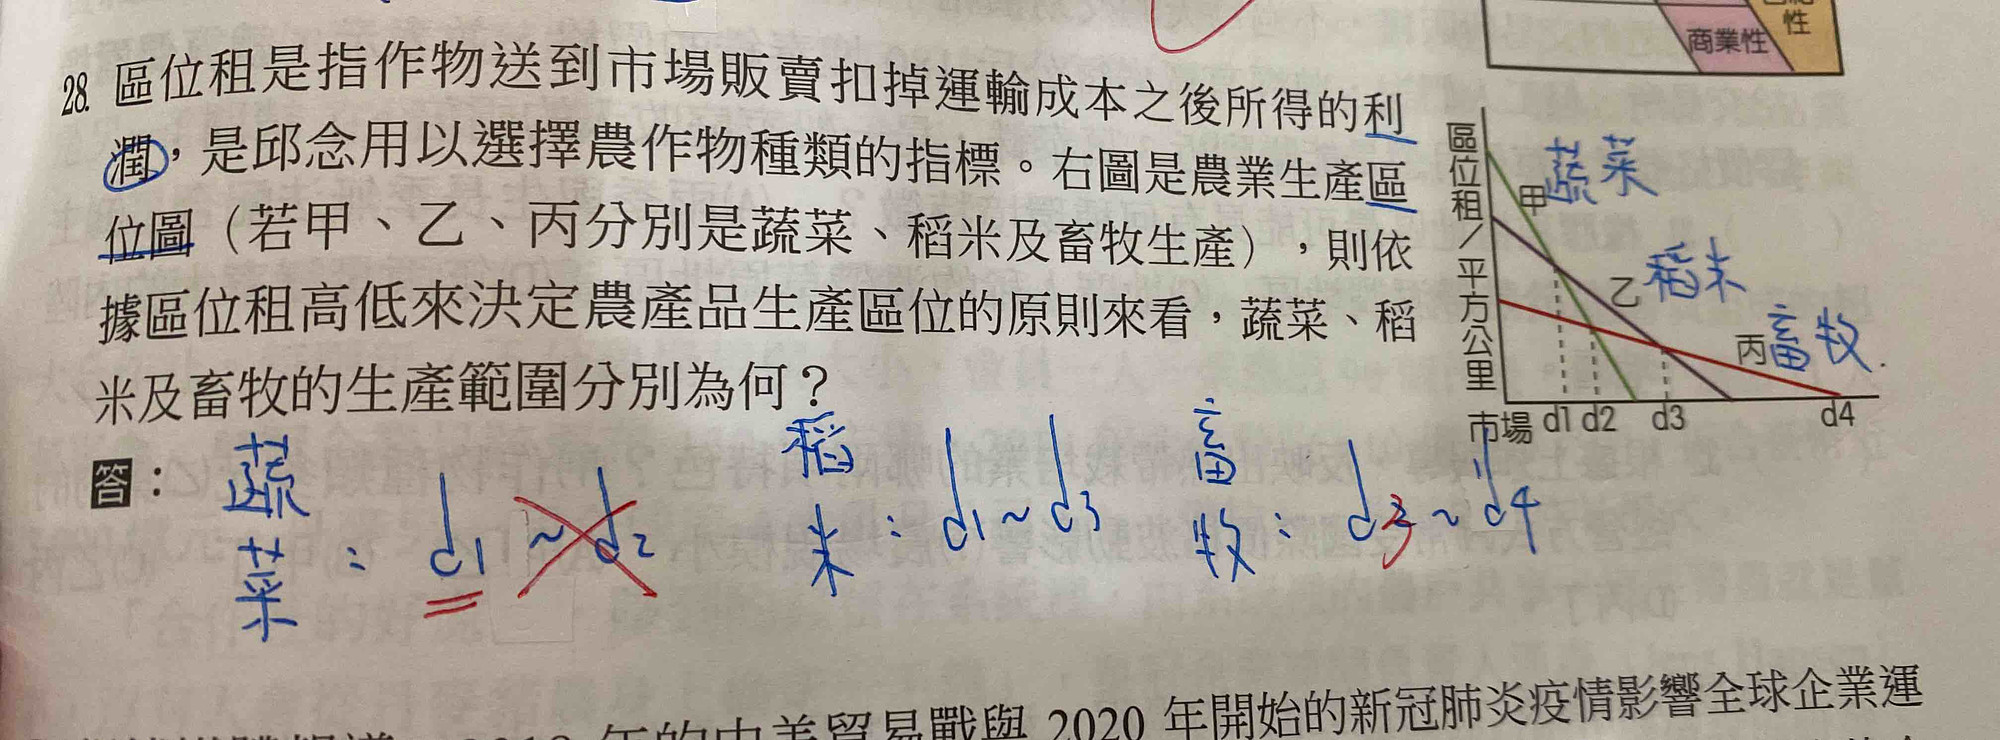 性
商業性
28. 區位租是指作物送到市場販賣扣掉運輸成本之後所得的利
潤，是邱念用以選擇農作物種類的指標。右圖是農業生產區
位圖（若甲、乙、丙分別是蔬菜、稻米及畜牧生產），則依
據區位租高低來決定農產品生產區位的原則來看，蔬菜、稻
米及畜牧的生產範圍分別為何？
區位租／平方公里
甲 蔬菜
乙 稻米
丙 畜牧
市場 d1 d2 d3 d4
答：蔬菜：d1~d2 稻米：d1~d3 畜牧：d3~d4
年的中美貿易戰與 2020 年開始的新冠肺炎疫情影響全球企業運